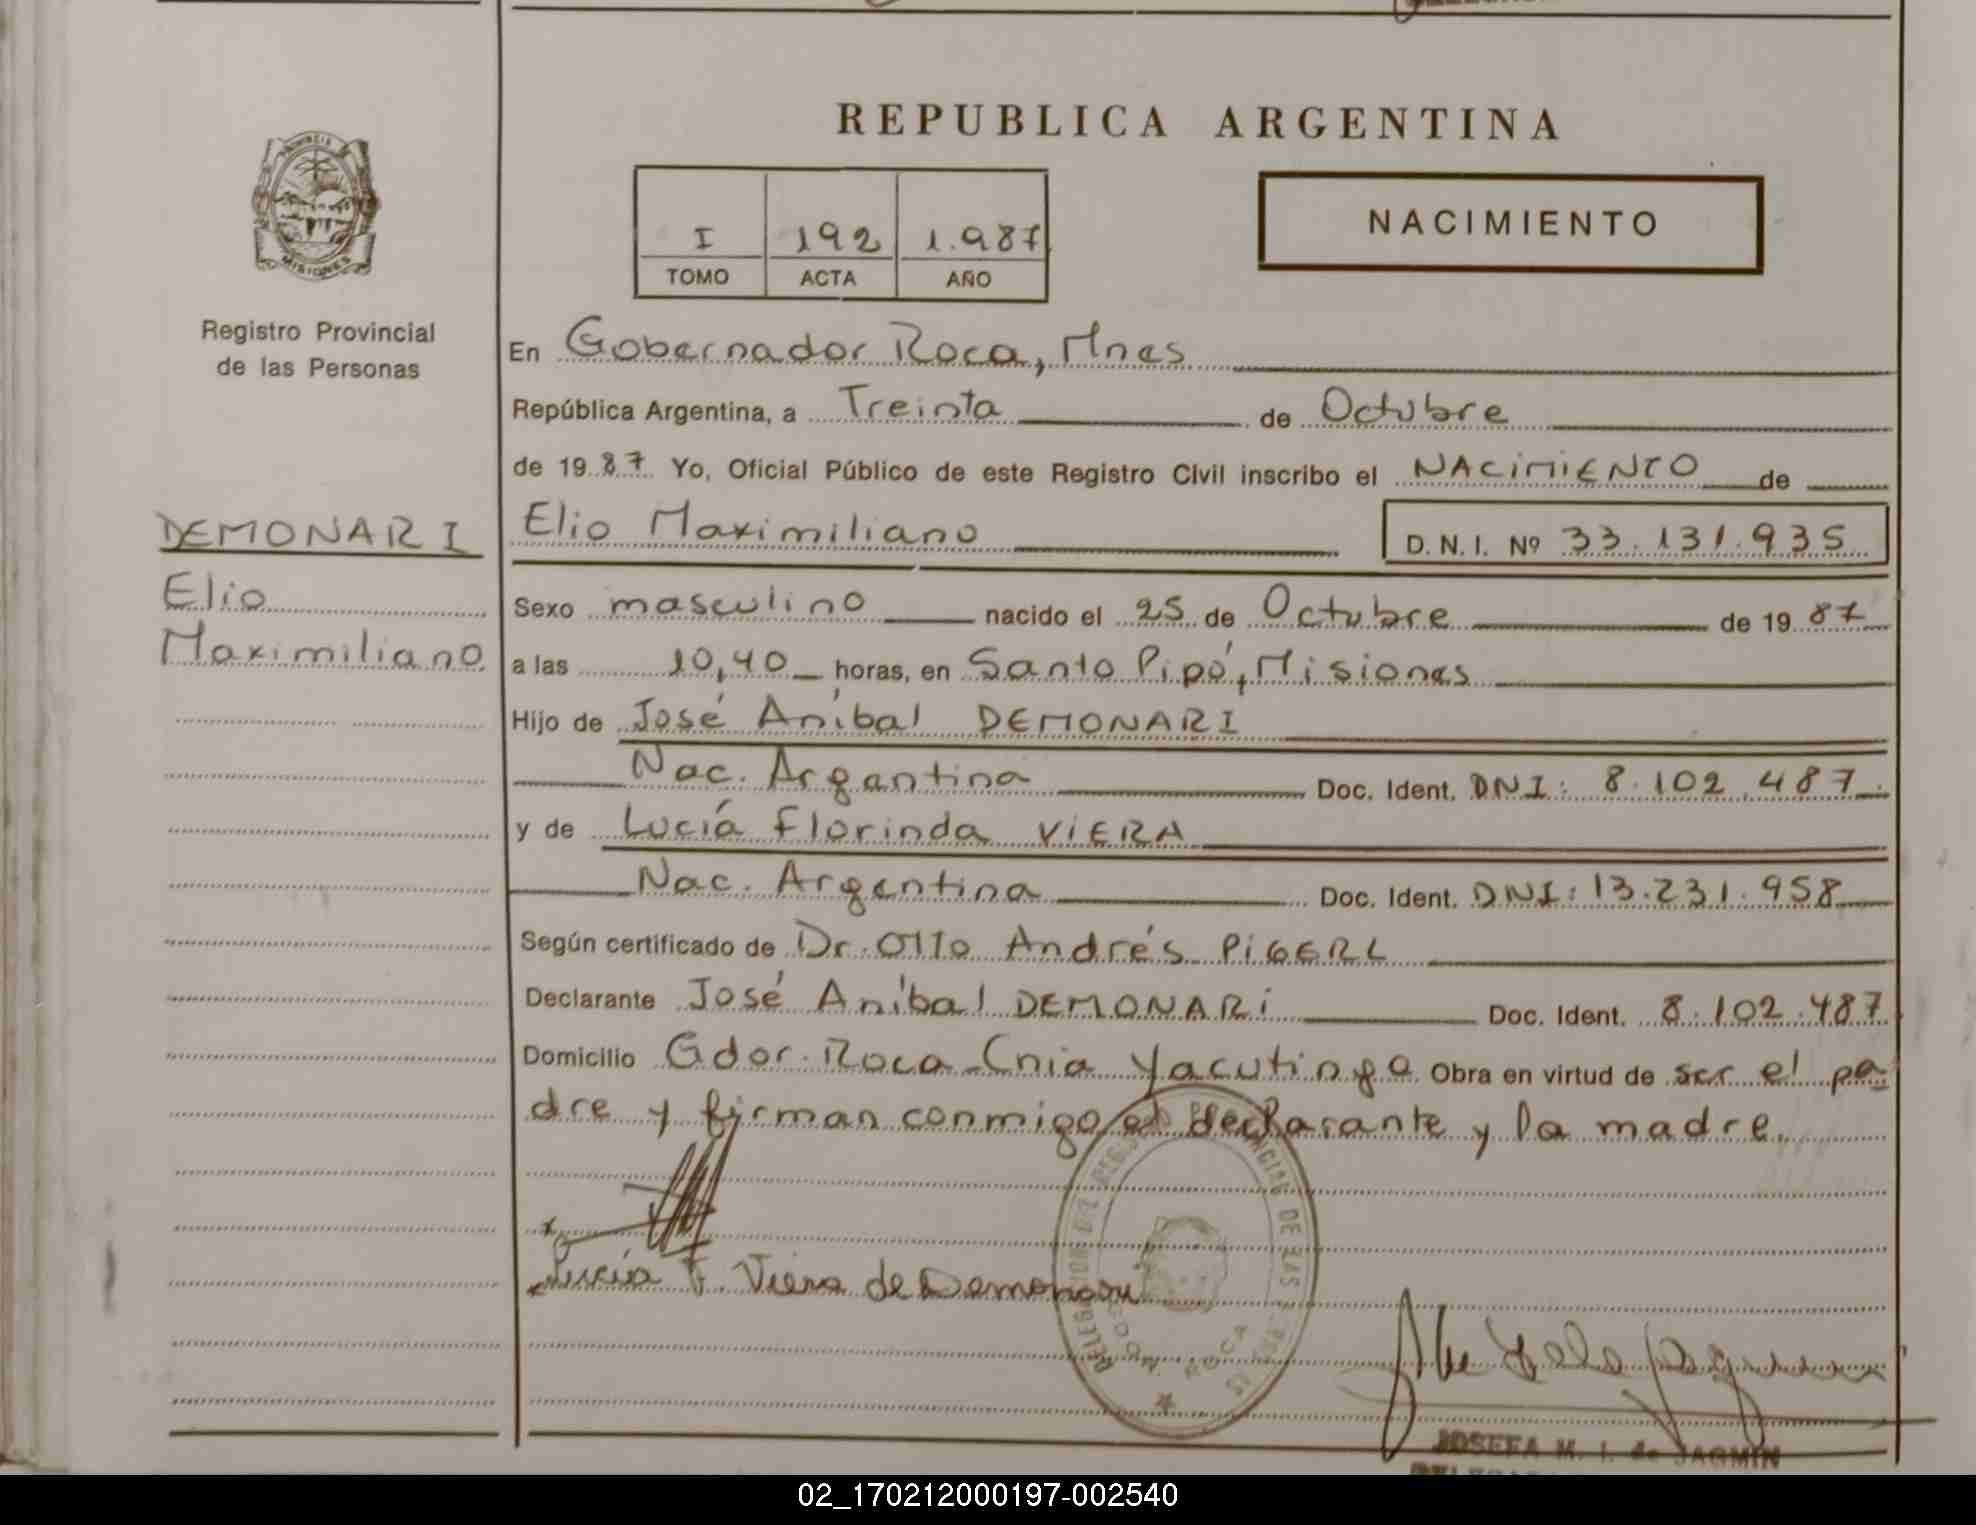 REPUBLICA ARGENTINA
PROVINCIA
MISIONES
Registro Provincial
de las Personas
I 192 1.987
TOMO ACTA AÑO
NACIMIENTO
En Gobernador Roca, Mnes
República Argentina, a Treinta de Octubre
de 19 87 Yo, Oficial Público de este Registro Civil inscribo el NACiMiENTO de
DEMONARI
Elio
Maximiliano
Elio Maximiliano D. N. I. Nº 33.131.935
Sexo masculino nacido el 25 de Octubre de 19 87
a las 10,40 horas, en Santo Pipó, Misiones
Hijo de José Aníbal DEMONARI
Nac. Argantina Doc. Ident. DNI: 8.102.487
y de Lucía Florinda ViERA
Nac. Argentina Doc. Ident. DNI: 13.231.958
Según certificado de Dr. Otto Andrés PiGERL
Declarante José Aníbal DEMONARi Doc. Ident. 8.102.487
Domicilio Gdor. Roca-Cnia Yacutinga Obra en virtud de ser el pa
dre y firman conmigo el declarante y la madre.
Lucía F. Viera de Demonari
DELEGACION DEL REGISTRO PROVINCIAL DE LAS PERSONAS
ROCA
JOSEFA M. I. de JAGMIN
02_170212000197-002540